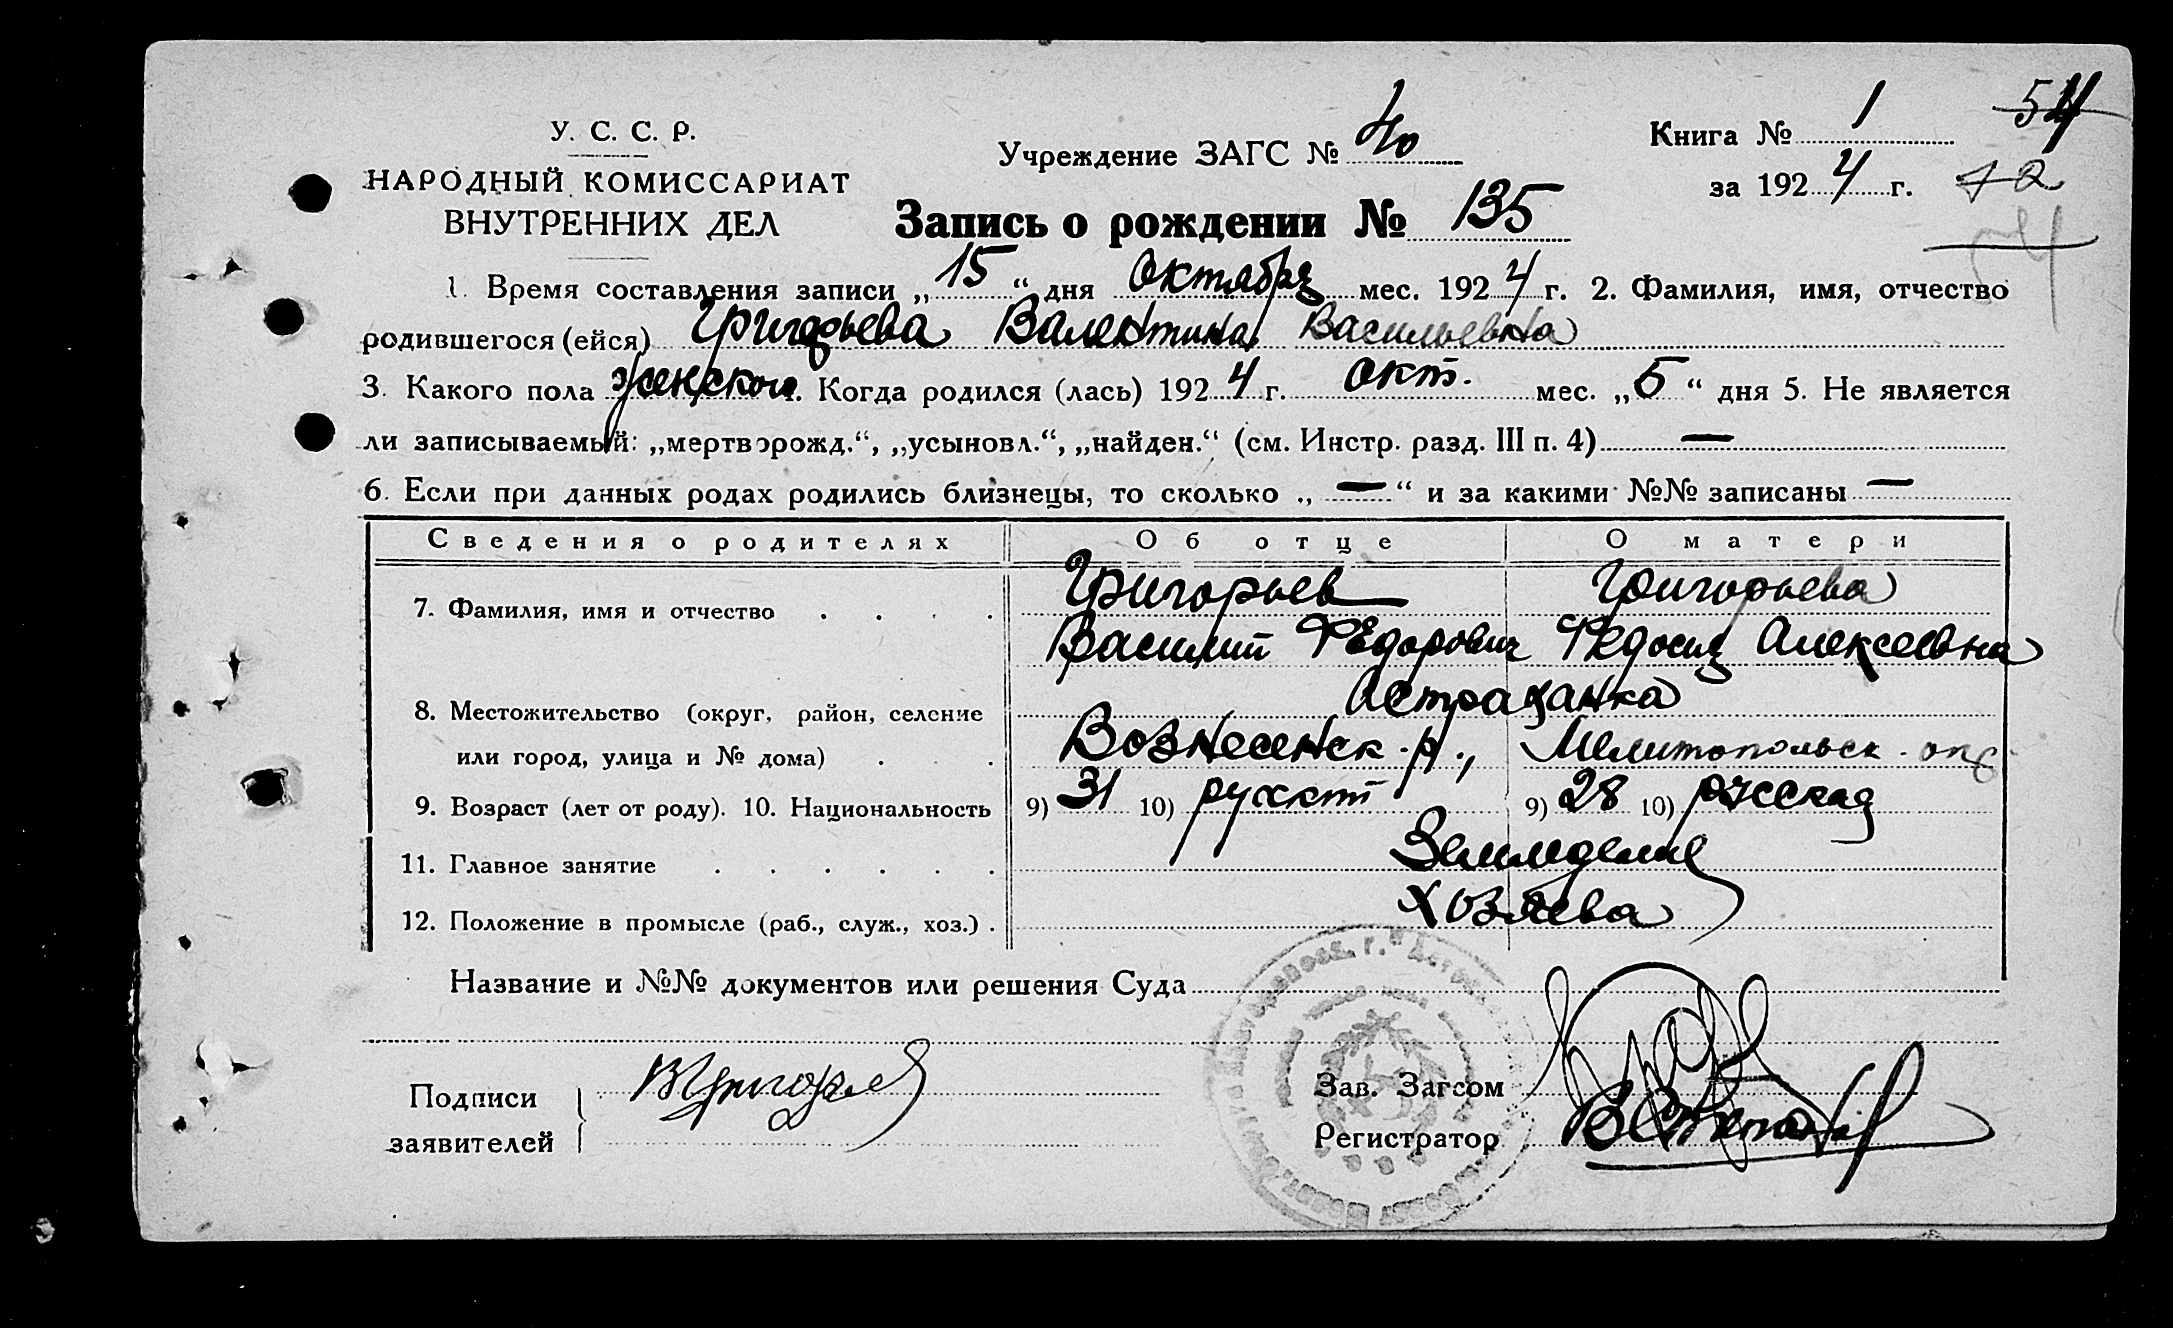 У. С. С. Р.
НАРОДНЫЙ КОМИССАРИАТ
ВНУТРЕННИХ ДЕЛ
Учреждение ЗАГС № 40
Книга № 1
за 1924 г.
54
42
Запись о рождении № 135
1. Время составления записи „15“ дня Октября мес. 1924 г. 2. Фамилия, имя, отчество
родившегося (ейся) Григорьева Валентина Васильевна
3. Какого пола женского. Когда родился (лась) 1924 г. окт. мес. „5“ дня 5. Не является
ли записываемый: „мертворожд.“, „усыновл.“, „найден.“ (см. Инстр. разд. III п. 4) —
6. Если при данных родах родились близнецы, то сколько „—“ и за какими №№ записаны —
Сведения о родителях Об отце О матери
7. Фамилия, имя и отчество . . . . Григорьев Григорьева
Василий Федорович Федосия Алексеевна
8. Местожительство (округ, район, селение Астраханка
или город, улица и № дома) . . . Вознесенск. р., Мелитопольск. окр.
9. Возраст (лет от роду). 10. Национальность 9) 31 10) русский 9) 28 10) русская
11. Главное занятие . . . . . . Земледелие
12. Положение в промысле (раб., служ., хоз.) . Хозяева
Название и №№ документов или решения Суда
Подписи
заявителей
ВГригорьев
Зав. Загсом
Регистратор